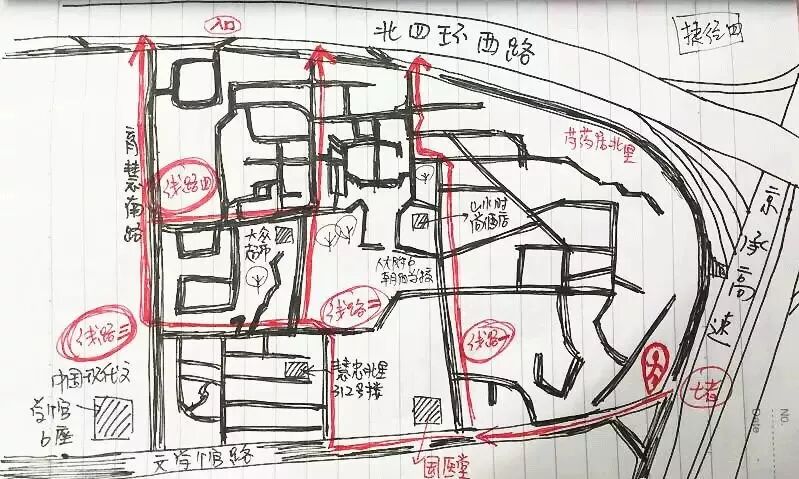 入口
北四环西路
捷径四
育慧南路
芍药居北里
线路四
山水时
尚酒店
京承高速
大众
超市
人大附中
朝阳学校
线路二
线路三
线路一
中国现代文
学馆
B座
慧忠北里
312号楼
堵
No.
Date
文学馆路
国医堂